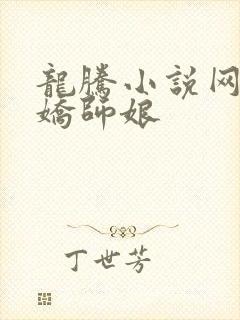 龍騰小説网
嬌師娘
丁世芳